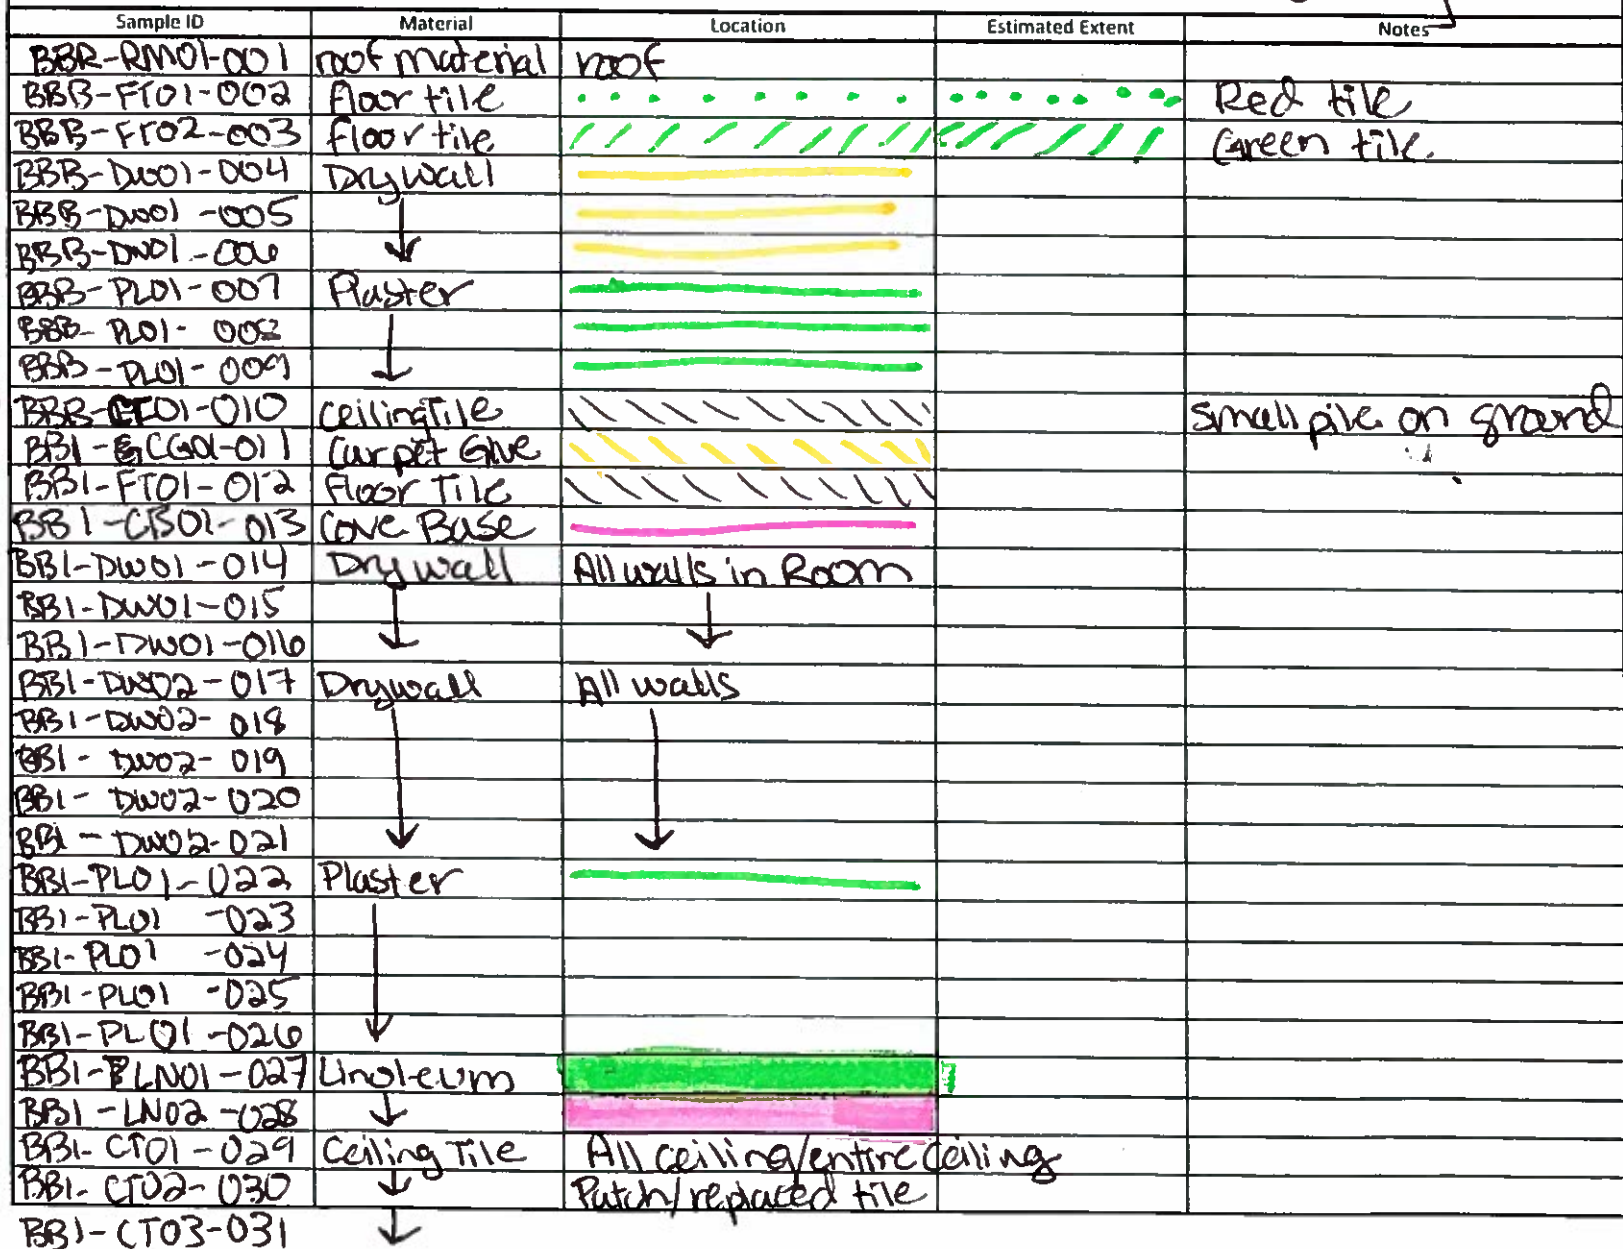 Sample ID Material Location Estimated Extent Notes
BBR-RM01-001 roof material roof
BBB-FT01-002 floor tile Red tile
BBB-FT02-003 floor tile Green tile.
BBB-DW01-004 Drywall
BBB-DW01-005
BBB-DW01-006
BBB-PL01-007 Plaster
BBB-PL01-008
BBB-PL01-009
BBB-CT01-010 Ceiling Tile Small pile on ground
BB1-CG01-011 Carpet Glue
BB1-FT01-012 Floor Tile
BB1-CB01-013 Cove Base
BB1-DW01-014 Drywall All walls in Room
BB1-DW01-015
BB1-DW01-016
BB1-DW02-017 Drywall All walls
BB1-DW02-018
BB1-DW02-019
BB1-DW02-020
BB1-DW02-021
BB1-PL01-022 Plaster
BB1-PL01-023
BB1-PL01-024
BB1-PL01-025
BB1-PL01-026
BB1-LN01-027 Linoleum
BB1-LN02-028
BB1-CT01-029 Ceiling Tile All ceiling/entire ceiling
BB1-CT02-030 Patch/replaced tile
BB1-CT03-031